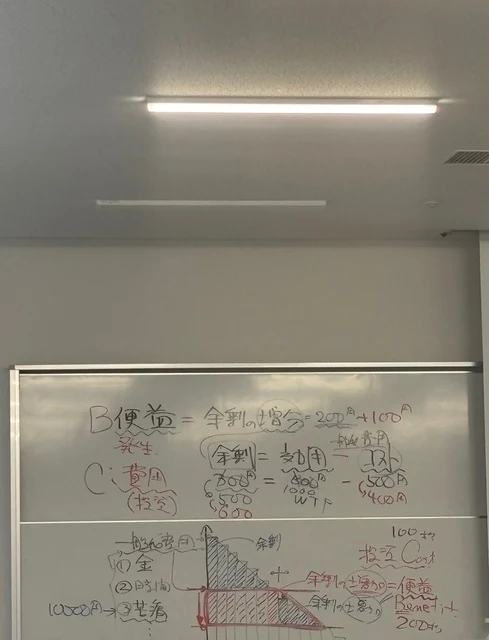 B便益 = 余剰の増分 = 200円+100円
発生
余剰 = 効用 - コスト
一般費用
C: 費用
(投資)
300円 = 800円 - 500円
500 1000 400円
600 WTP
100円
一般化費用
余剰
投資Cost
① 金
② 時間
余剰の増分 = 便益
10000円→③ 苦痛
余剰の増分
Benefit
200円